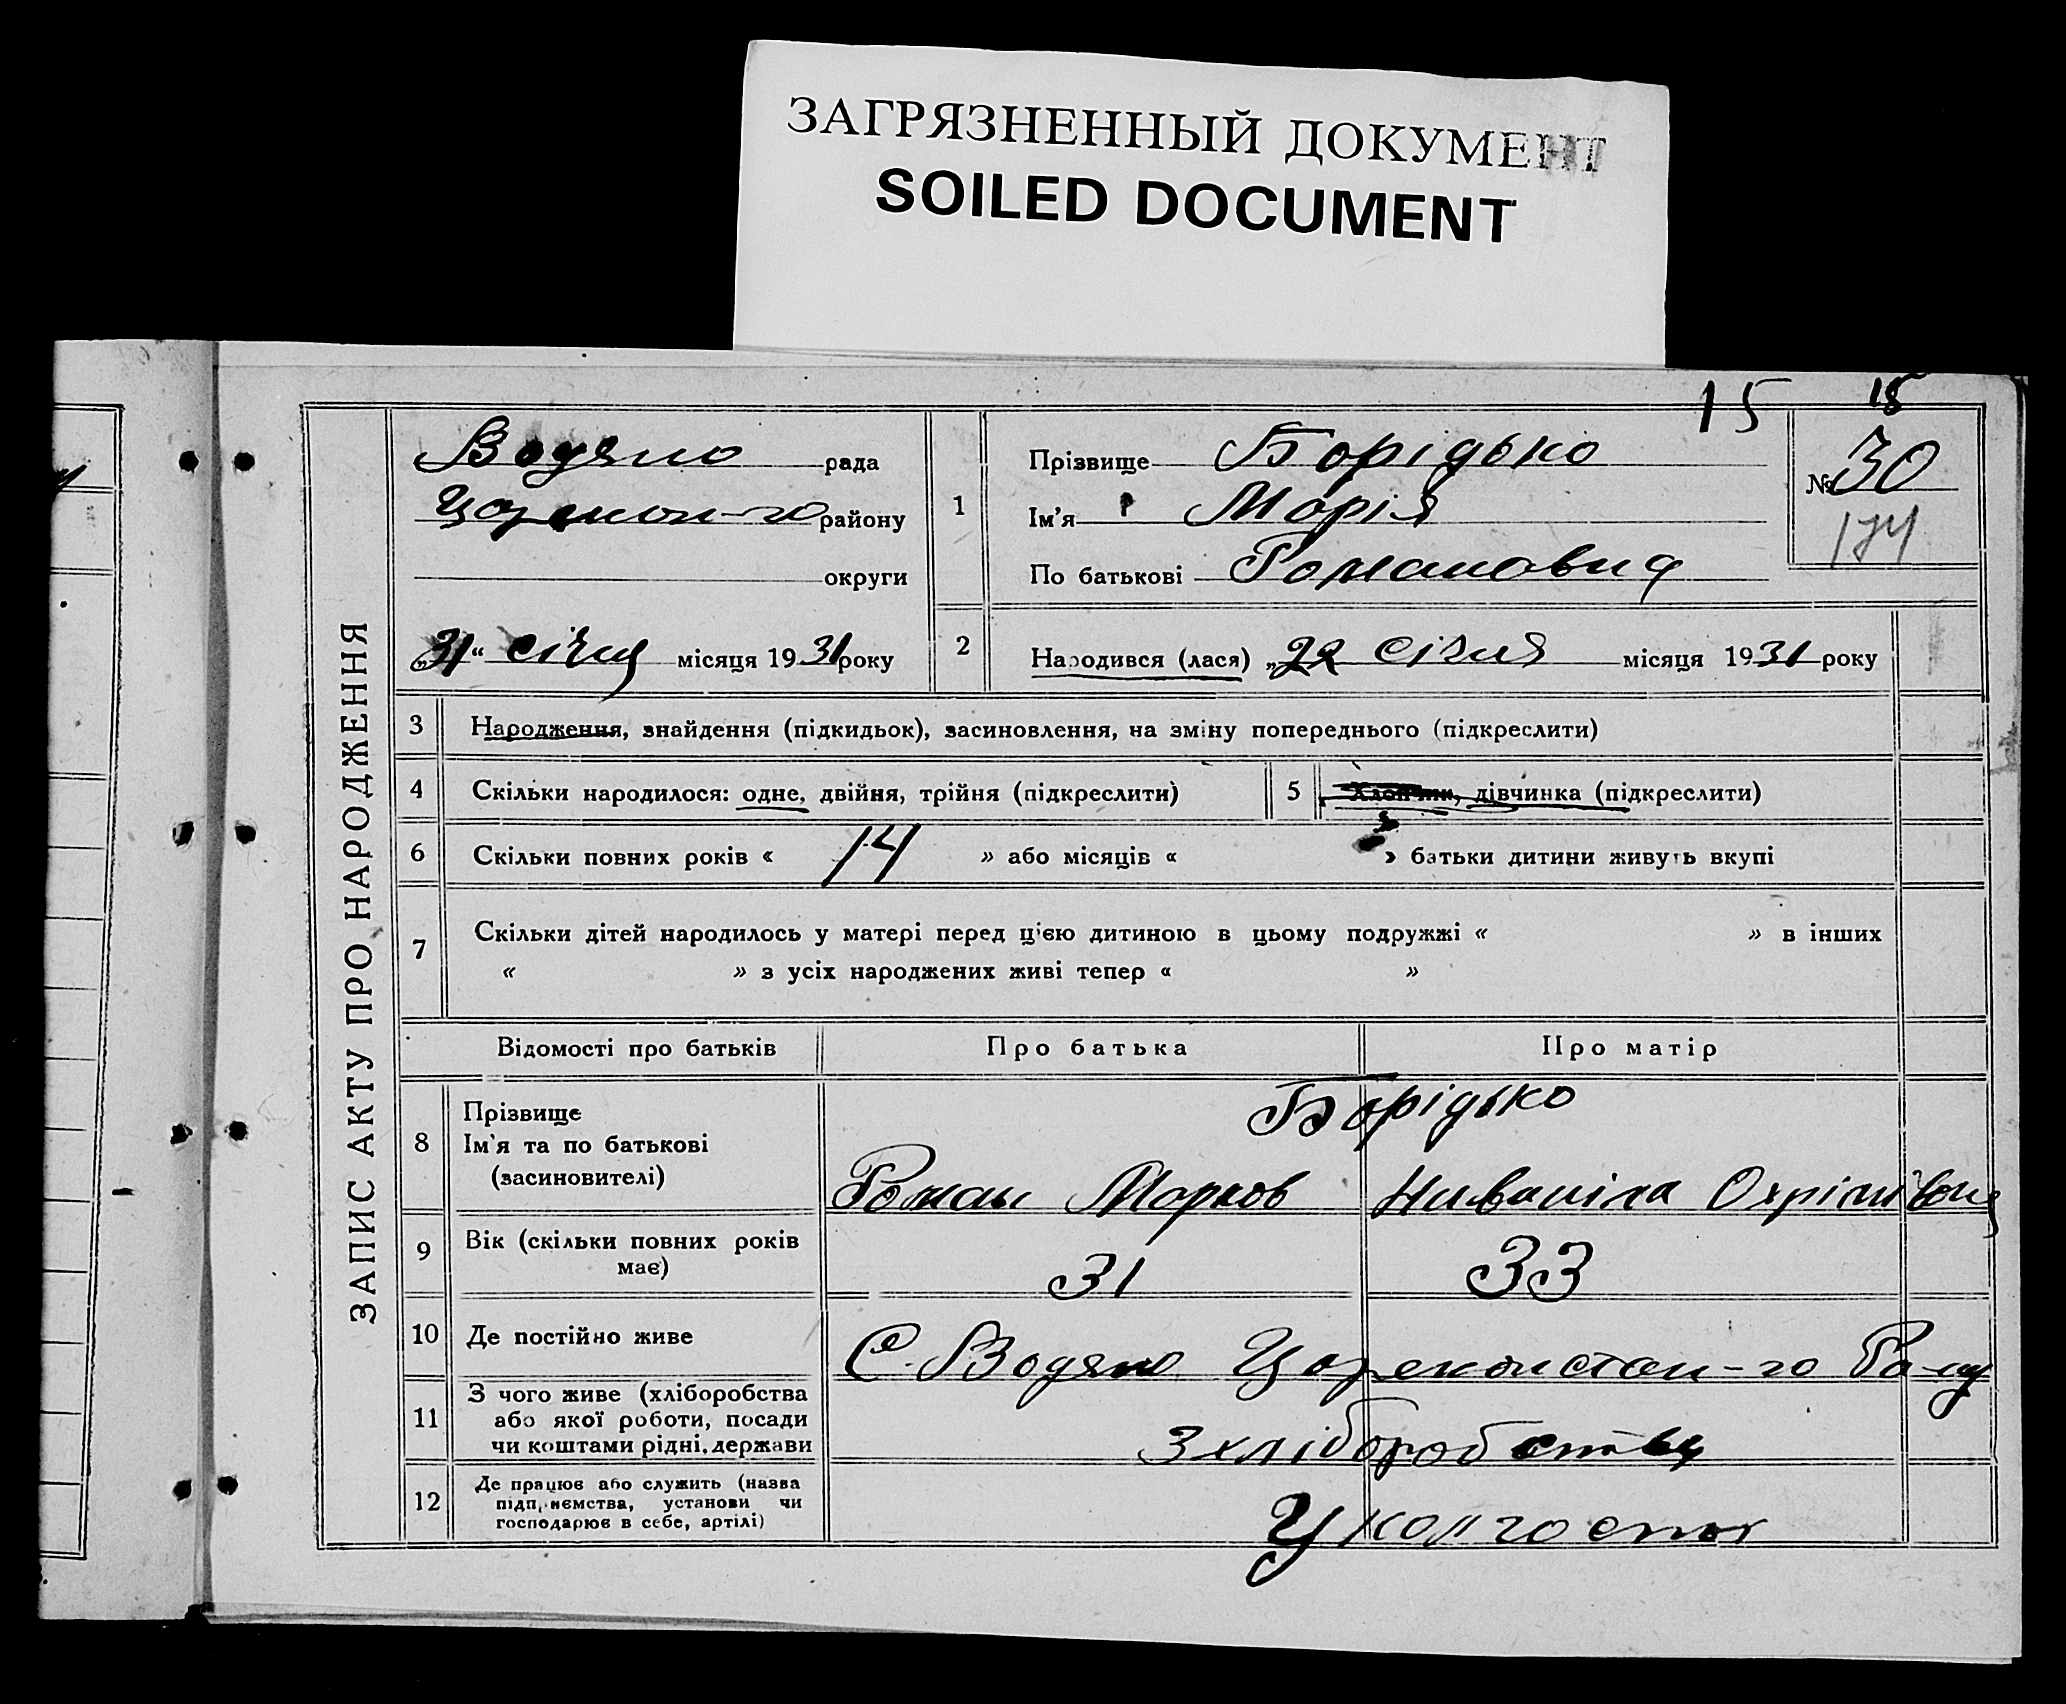 ЗАГРЯЗНЕННЫЙ ДОКУМЕНТ
SOILED DOCUMENT
15 15
ЗАПИС АКТУ ПРО НАРОДЖЕННЯ
Водяно рада
району
округи
„31“ січня місяця 1931 року
1
Прізвище Борідько
Ім'я Марія
По батькові Романовна
№ 30
174
2 Народився (лася) „22 січня місяця 1931 року
3 Народження, знайдення (підкидьок), засиновлення, на зміну попереднього (підкреслити)
4 Скільки народилося: одне, двійня, трійня (підкреслити) 5 Хлопчик, дівчинка (підкреслити)
6 Скільки повних років « 14 » або місяців « » батьки дитини живуть вкупі
7 Скільки дітей народилось у матері перед цією дитиною в цьому подружжі « » в інших
« » з усіх народжених живі тепер « »
Відомості про батьків Про батька Про матір
8 Прізвище
Ім'я та по батькові
(засиновителі)
Борідько
Роман Марков
9 Вік (скільки повних років
має)
31 33
10 Де постійно живе С. Водяно
11 З чого живе (хліборобства
або якої роботи, посади
чи коштами рідні, держави
З хліборобства
12 Де працює або служить (назва
підприємства, установи чи
господарює в себе, артілі)
У колгоспы